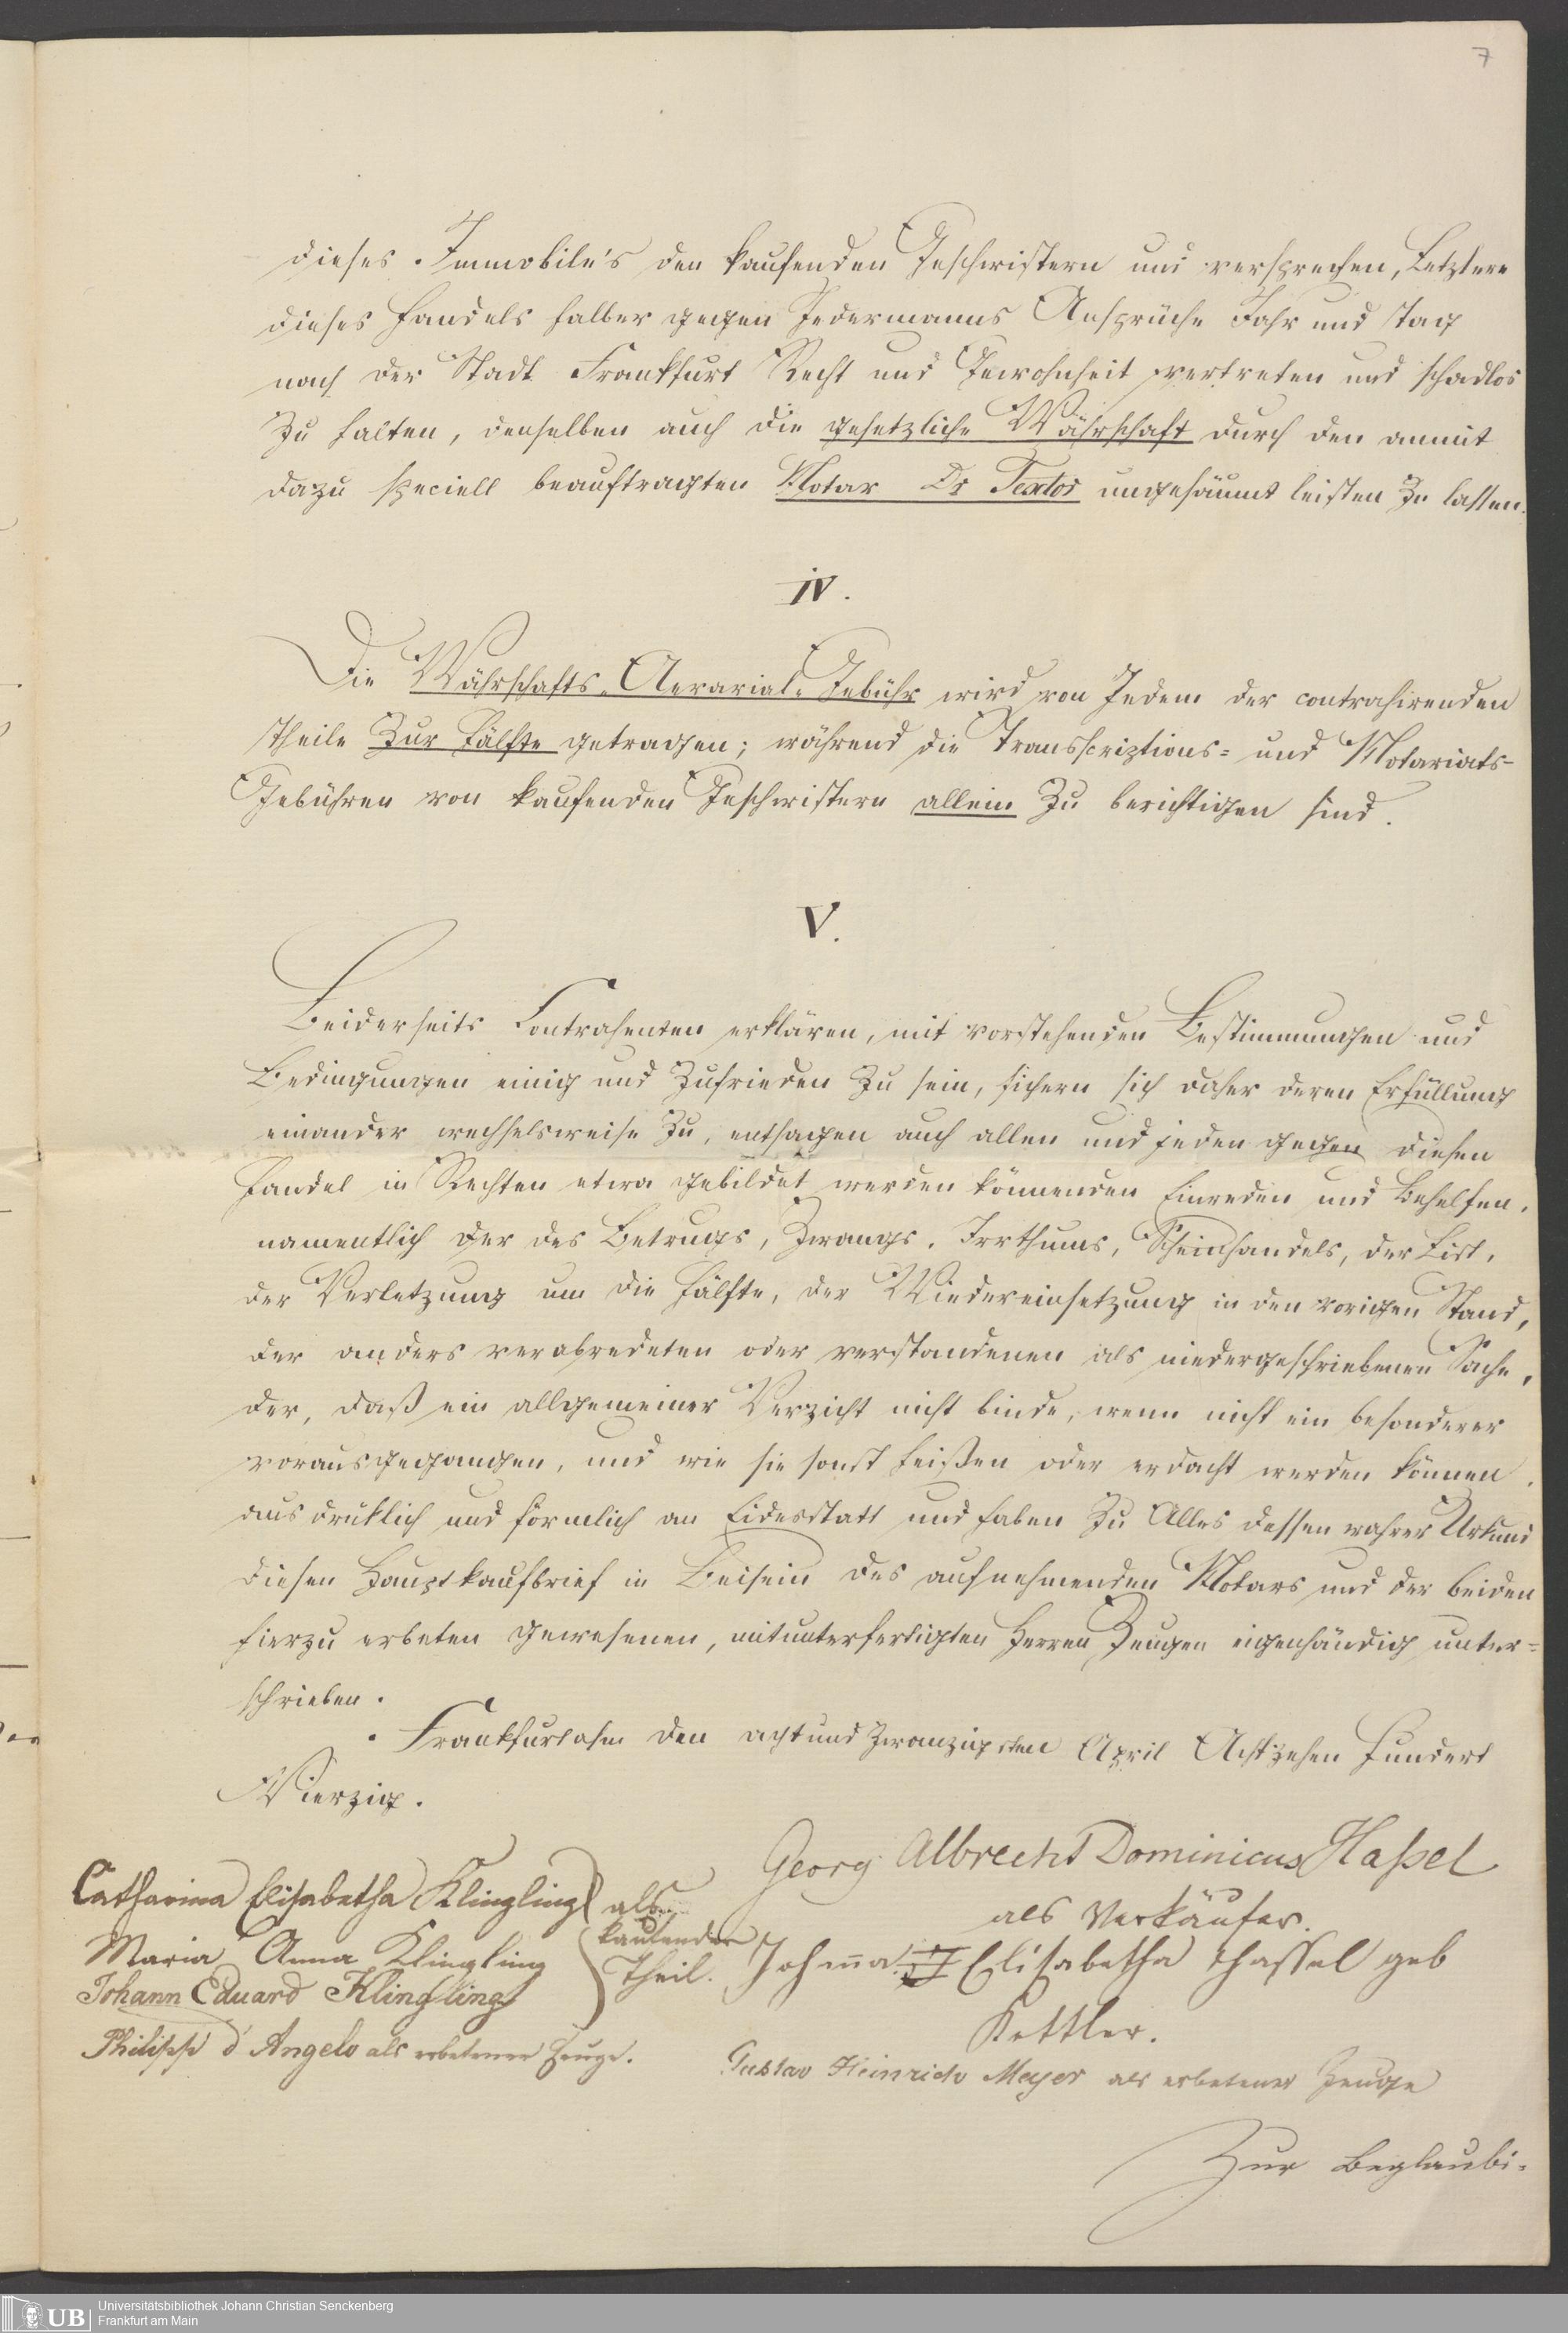 7
dieses Immobile's den kaufenden Geschwistern und versprechen, Letztere
dieses Handels halber gegen Jedermanns Ansprüche Jahr und Tag
nach der Stadt Frankfurt Recht und Gewohnheit zu vertreten und schadlos
zu halten, denselben auch die gesetzliche Währschaft durch den anmit
dazu speciell beauftragten Notar Dr Textor ungesäumt leisten zu lassen.
IV.
Die Währschafts-Aerarial-Gebühr wird von Jedem der contrahirenden
Theile zur Hälfte getragen; während die Transscriptions- und Notariats-
Gebühren von kaufenden Geschwistern allein zu berichtigen sind.
V.
Beiderseits Contrahenten erklären, mit vorstehenden Bestimmungen und
Bedingungen einig und zufrieden zu sein, sichern sich daher deren Erfüllung
einander wechselsweise zu, entsagen auch allen und jeden gegen diesen
Handel in Rechten etwa gebildet werden könnenden Einreden und Behelfen,
namentlich der des Betrugs, Zwangs, Irrthums, Scheinhandels, der List,
der Verletzung um die Hälfte, der Wiedereinsetzung in den vorigen Stand,
der anders verabredeten oder verstandenen als niedergeschriebenen Sache,
der, daß ein allgemeiner Verzicht nicht binde, wenn nicht ein besonderer
vorausgegangen, und wie sie sonst heißen oder erdacht werden können,
ausdrüklich und förmlich an Eidesstatt und haben zu Alles dessen wahrer Urkund
diesen Hauptkaufbrief in Beisein des aufnehmenden Notars und der beiden
hierzu erbeten gewesenen, mitunterfertigten Herren Zeugen eigenhändig unter-
schrieben.
Frankfurt a/m den achtundzwanzigsten April Achtzehen Hundert
Vierzig.
Georg Albrecht Dominicus Haßel
als Verkäufer.
Catharina Elisabetha Klingling
Maria Anna Klingling
Johann Eduard Klingling
als
kaufender
Theil.
Elisabetha Hassel geb
Kettler.
Philipp d'Angelo als erbetener Zeuge.
Gustav Heinrich Meyer als erbetener Zeuge
Zur Beglaubi-
UB
Universitätsbibliothek Johann Christian Senckenberg
Frankfurt am Main